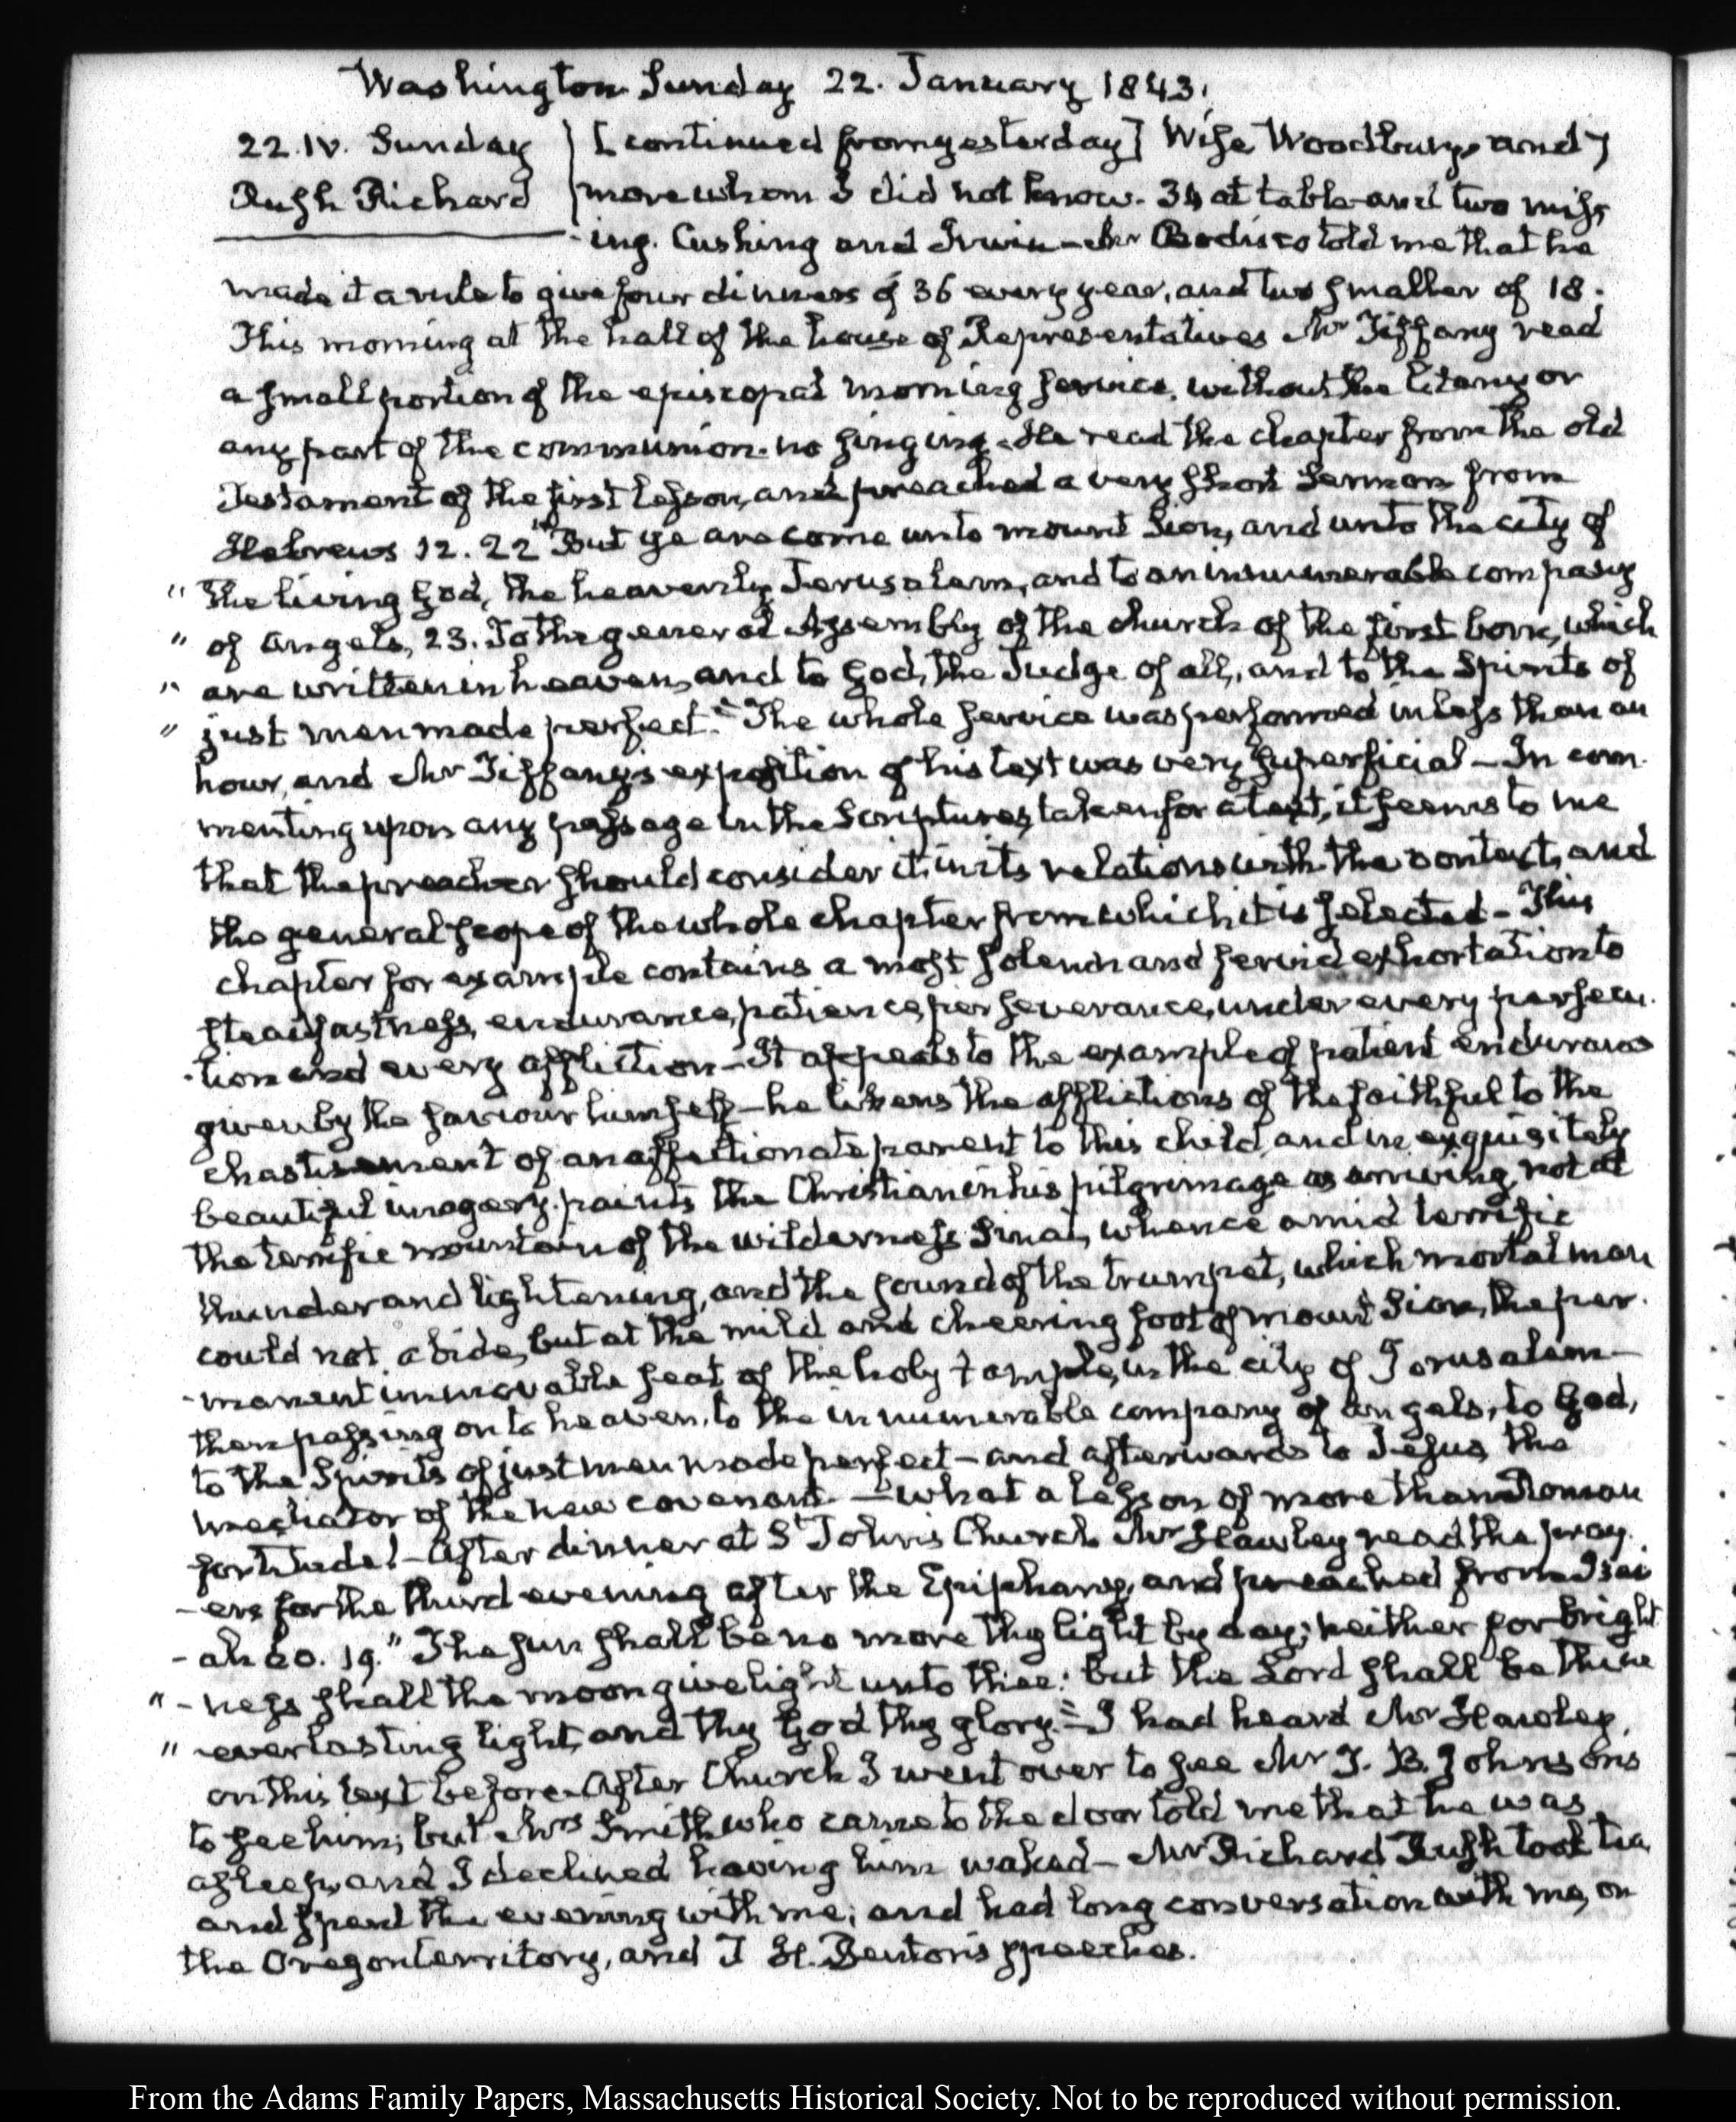 Washington Sunday 22. January 1843.
22. IV. Sunday
Rush Richard
[continued from yesterday] Wife Woodbury, and 7
more whom I did not know. 34 at table and two miss-
-ing. Cushing and Irwin — Mr Bodisco told me that he
made it a rule to give four dinners of 36 every year, and two smaller of 18.
This morning at the hall of the house of Representatives Mr Tiffany read
a small portion of the episcopal morning service, without the litany or
any part of the communion. no singing. He read the chapter from the old
Testament of the first lesson, and preached a very short Sermon from
Hebrews 12. 22 "But ye are come unto mount Sion, and unto the city of
" the living God, the heavenly Jerusalem, and to an innumerable company
" of angels, 23. To the general Assembly of the church of the first born, which
" are written in heaven, and to God, the Judge of all, and to the Spirits of
" just men made perfect." The whole service was performed in less than an
hour, and Mr Tiffany's exposition of his text was very superficial — In com-
menting upon any passage in the Scriptures, taken for a text, it seems to me
that the preacher should consider it in its relations with the context, and
the general scope of the whole chapter from which it is selected — This
chapter for example contains a most solemn and fervid exhortation to
steadfastness, endurance, patience, perseverance, under every persecu-
-tion and every affliction — It appeals to the example of patient endurance
given by the saviour himself — he likens the afflictions of the faithful to the
chastisement of an affectionate parent to this child, and in exquisitely
beautiful imagery. paints the Christian in his pilgrimage as arriving, not at
the terrific mountain of the wilderness Sinai, whence amid terrific
thunder and lightening, and the sound of the trumpet, which mortal man
could not abide, but at the mild and cheering foot of mount Sion, the per-
-manent immovable seat of the holy temple, in the city of Jerusalem —
then passing on to heaven, to the innumerable company of angels, to God,
to the Spirits of just men made perfect — and afterwards to Jesus the
mediator of the new covenant. — what a lesson of more than Roman
fortitude! — After dinner at St John's Church Mr Hawley read the pray-
-ers for the third evening after the Epiphany, and preached from Isai-
-ah 60. 19. "The sun shall be no more thy light by day; neither for bright-
" -ness shall the moon give light unto thee: but the Lord shall be thine
" everlasting light, and thy God thy glory." — I had heard Mr Hawley,
on this text before. After Church I went over to see Mr J. B. Johnson's
to see him; but Mrs Smith who came to the door told me that he was
asleep, and I declined having him waked — Mr Richard Rush took tea
and spent the evening with me; and had long conversation with me, on
the Oregon territory, and T H. Benton's speeches.
From the Adams Family Papers, Massachusetts Historical Society. Not to be reproduced without permission.